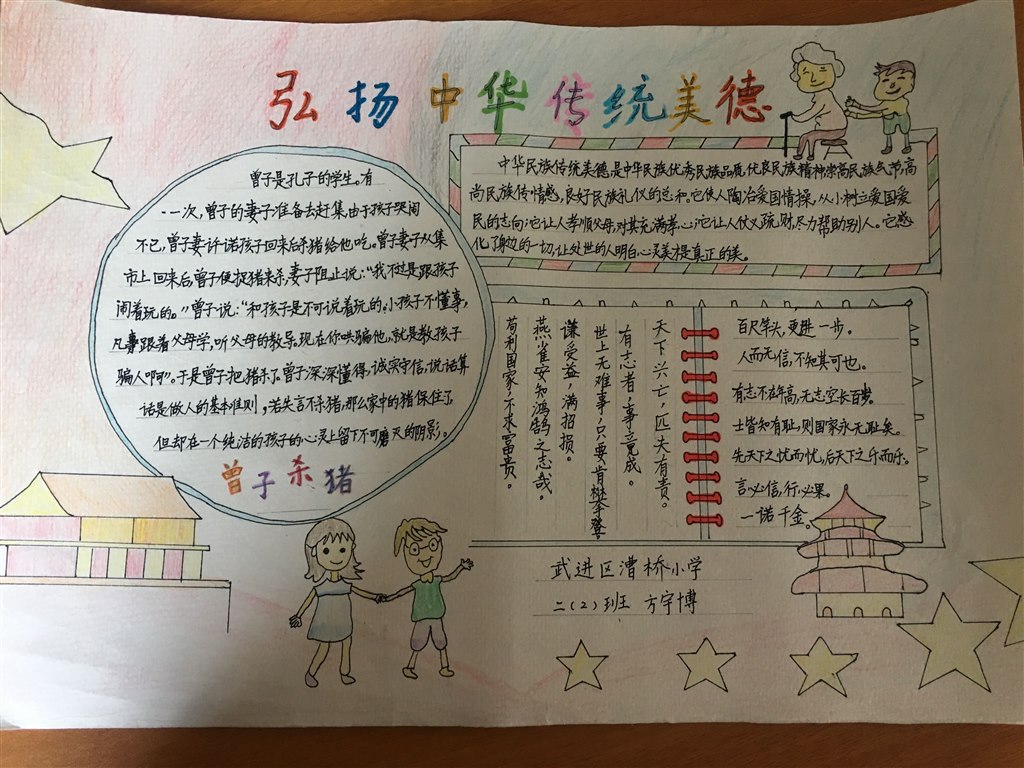 弘扬中华传统美德
曾子是孔子的学生。有
一次,曾子的妻子准备去赶集,由于孩子哭闹
不已,曾子妻许诺孩子回来后杀猪给他吃。曾子妻从集
市上回来后,曾子便捉猪来杀,妻子阻止说:“我不过是跟孩子
闹着玩的。”曾子说:“和孩子是不可说着玩的。小孩子不懂事,
凡事跟着父母学,听父母的教导。现在你哄骗他,就是教孩子
骗人啊”。于是曾子把猪杀了。曾子深深懂得,诚实守信,说话算
话是做人的基本准则,若失言不杀猪,那么家中的猪保住了,
但却在一个纯洁的孩子的心灵上留下不可磨灭的阴影。
曾子杀猪
中华民族传统美德是中华民族优秀民族品质,优良民族精神,崇高民族气节,高
尚民族传情感,良好民族礼仪的总和。它使人陶冶爱国情操,从小树立爱国爱
民的志向;它让人孝顺父母,对其充满孝心;它让人仗义疏财,尽力帮助别人。它感
化了身边的一切,让处世的人明白心灵美才是真正的美。
天下兴亡,匹夫有责。
有志者,事竟成。
世上无难事,只要肯攀登
谦受益,满招损。
燕雀安知鸿鹄之志哉。
苟利国家,不求富贵。
百尺竿头,更进一步。
人而无信,不知其可也。
有志不在年高,无志空长百岁。
士皆知有耻,则国家永无耻矣。
先天下之忧而忧,后天下之乐而乐。
言必信,行必果。
一诺千金。
武进区漕桥小学
二(2)班 方宇博